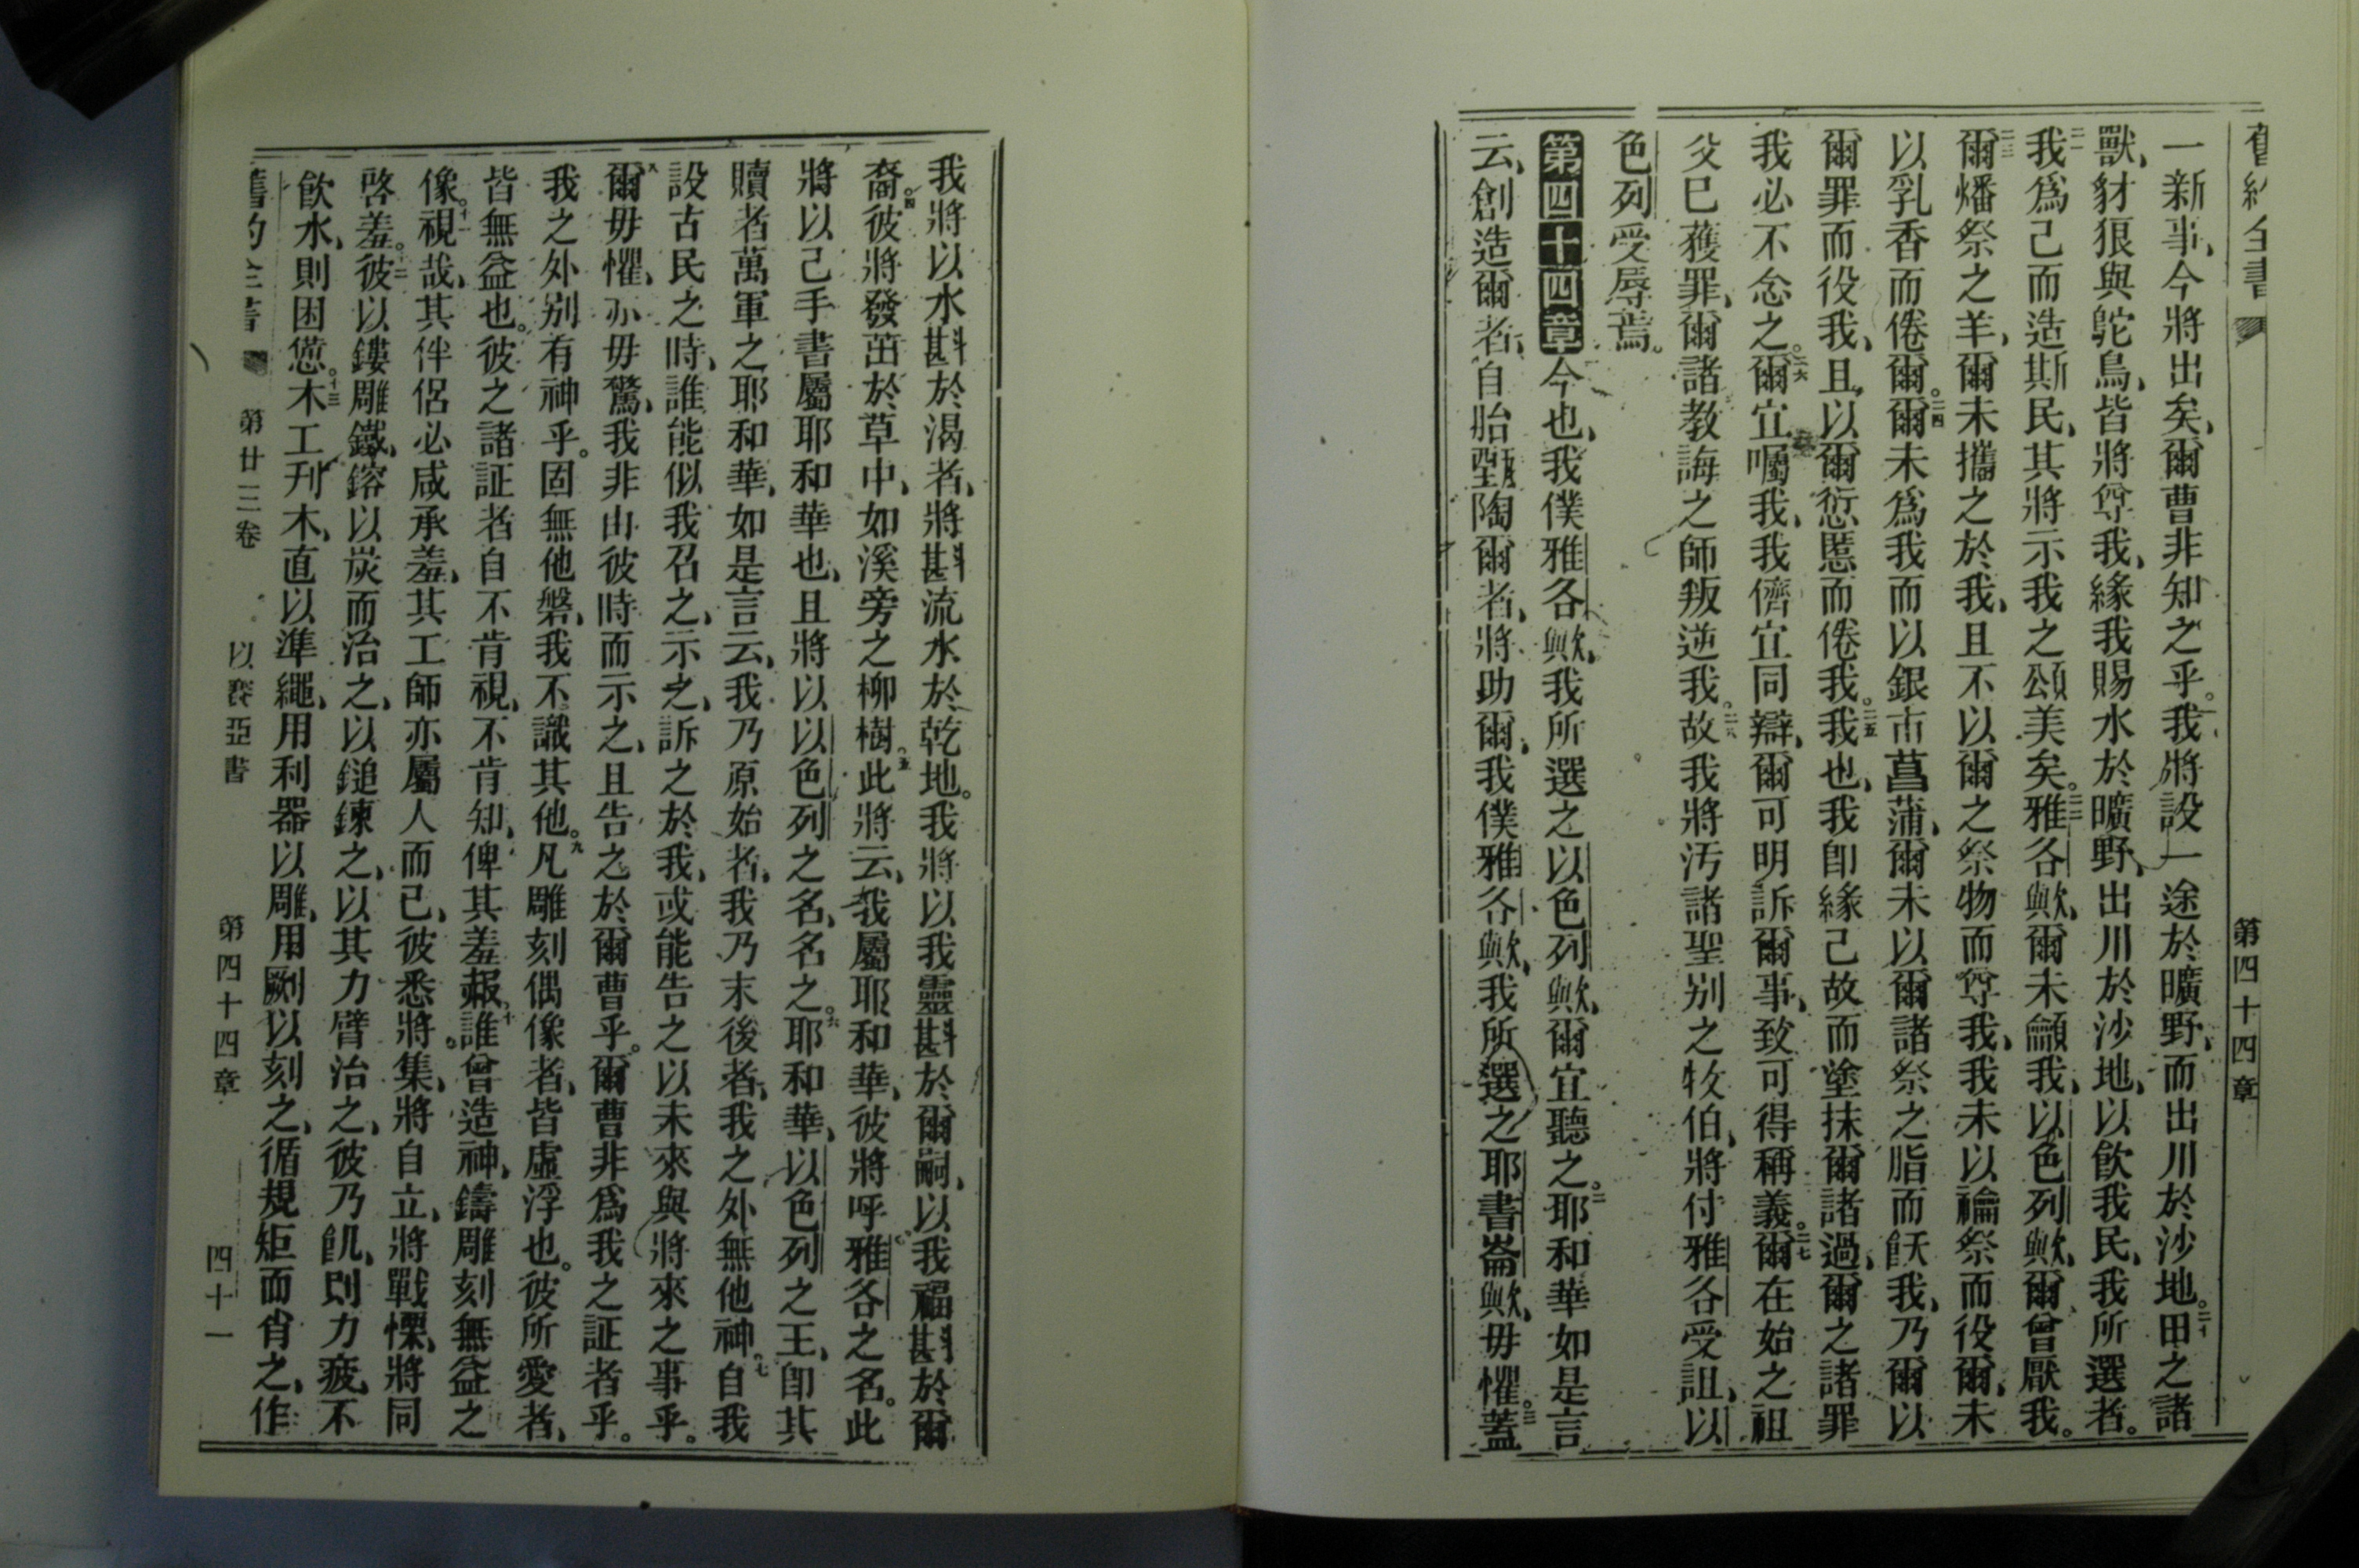 舊約全書
第四十四章
一新事、今將出矣、爾曹非知之乎。我將設一途於曠野、而出川於沙地。二十田之諸
獸、豺狼與鴕鳥、皆將尊我、緣我賜水於曠野、出川於沙地、以飲我民、我所選者。
二一我爲己而造斯民、其將示我之頌美矣。二二雅各歟、爾未龥我、以色列歟、爾曾厭我。
二三爾燔祭之羊、爾未攜之於我、且不以爾之祭物而尊我、我未以禴祭而役爾、未
以乳香而倦爾。二四爾未爲我而以銀市菖蒲、爾未以爾諸祭之脂而飫我、乃爾以
爾罪而役我、且以爾愆慝而倦我。二五我也、我卽緣己故而塗抹爾諸過、爾之諸罪
我必不念之。二六爾宜囑我、我儕宜同辯、爾可明訴爾事、致可得稱義。二七爾在始之祖
父已獲罪、爾諸教誨之師叛逆我。二八故我將汚諸聖别之牧伯、將付雅各受詛、以
色列受辱焉。
第四十四章今也、我僕雅各歟、我所選之以色列歟、爾宜聽之。二耶和華如是言
云、創造爾者、自胎甄陶爾者、將助爾、我僕雅各歟、我所選之耶書崙歟、毋懼。三蓋
我將以水斟於渴者、將斟流水於乾地。我將以我靈斟於爾嗣、以我福斟於爾
裔。四彼將發茁於草中、如溪旁之柳樹。五此將云、我屬耶和華、彼將呼雅各之名。此
將以己手書屬耶和華也、且將以以色列之名、名之。六耶和華、以色列之王、卽其
贖者萬軍之耶和華、如是言云、我乃原始者、我乃末後者、我之外無他神。七自我
設古民之時、誰能似我召之、示之、訴之於我、或能告之以未來與將來之事乎。
八爾毋懼、亦毋驚、我非由彼時而示之、且告之於爾曹乎。爾曹非爲我之証者乎。
我之外别有神乎。固無他磐、我不識其他。九凡雕刻偶像者、皆虛浮也。彼所愛者、
皆無益也。彼之諸証者自不肯視、不肯知、俾其羞赧。十誰曾造神、鑄雕刻無益之
像。十一視哉、其伴侶必咸承羞、其工師亦屬人而已、彼悉將集、將自立、將戰慄、將同
啓羞。十二彼以鏤雕鐵、鎔以炭而治之、以鎚鍊之、以其力臂治之、彼乃飢、則力疲、不
飲水、則困憊。十三木工刋木、直以準繩、用利器以雕、用劂以刻之、循規矩而肖之、作
舊約全書 第廿三卷 以賽亞書 第四十四章 四十一